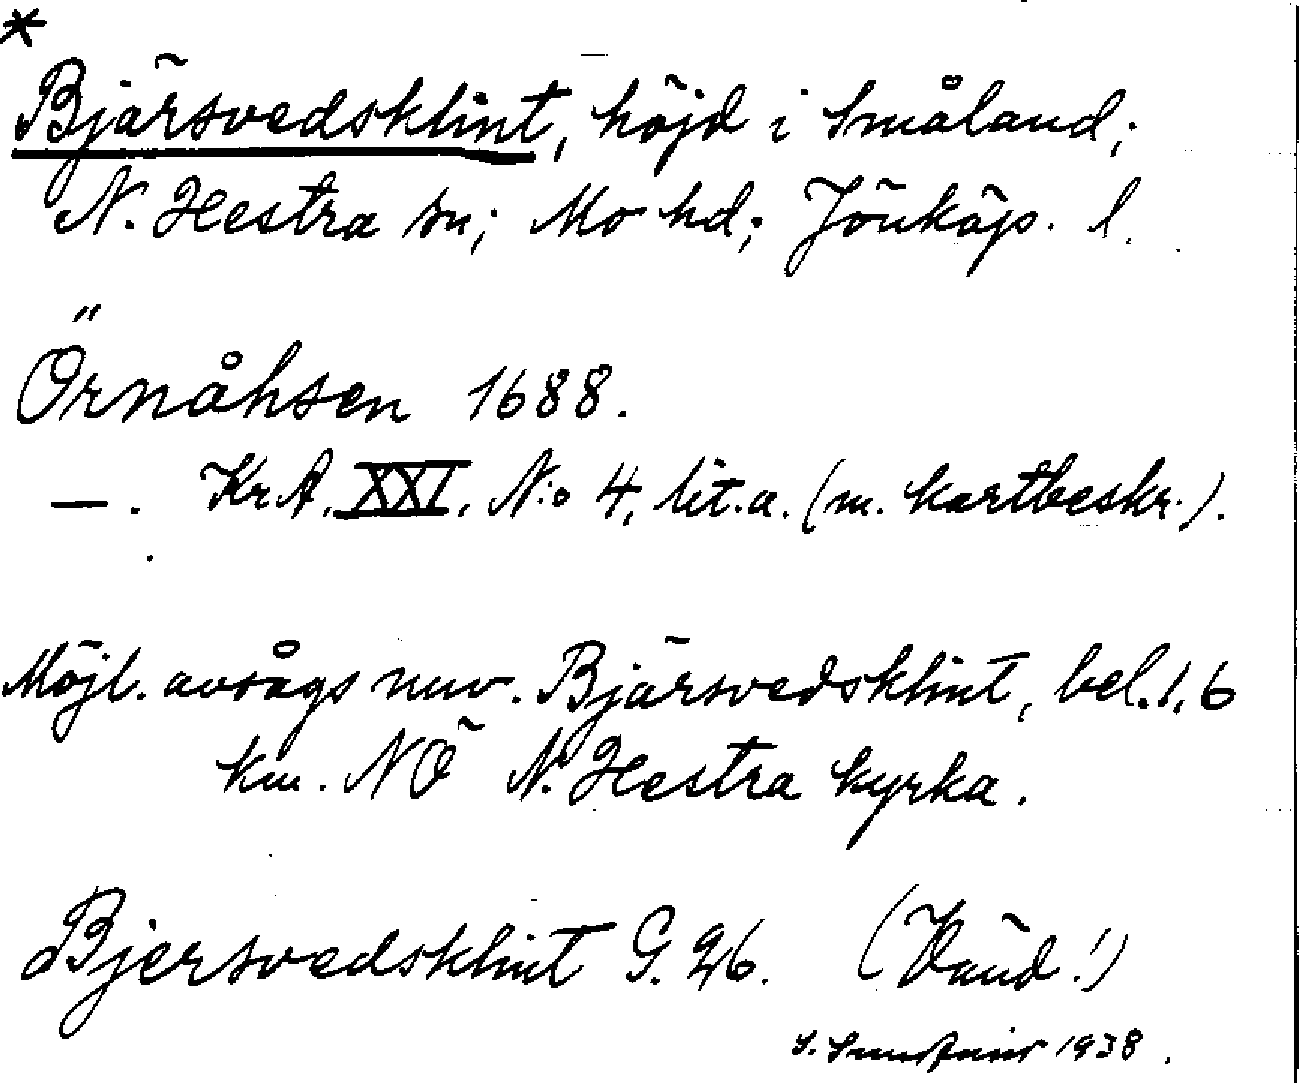 *
Bjärsvedsklint, höjd i Småland;
N. Hestra sn; Mo hd; Jönköp. l.
Örnåhsen 1688.
—. KrA. XXI. N:o 4, lit.a. (m. kartbeskr.).
Möjl. avsågs nuv. Bjärsvedsklint, bel. 1,6
km. NÖ N. Hestra kyrka.
Bjersvedsklint G. 26. (Vänd!)
S. 1938.